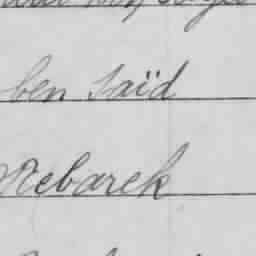 ben Saïd
Mebarek